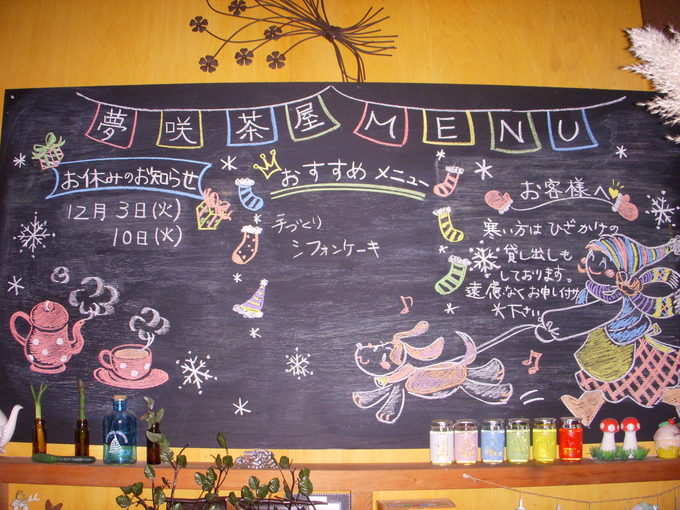 夢咲茶屋MENU
お休みのお知らせ
12月3日(火)
10日(火)
おすすめメニュー
手づくり
シフォンケーキ
お客様へ
寒い方はひざかけの
貸し出しも
しております。
遠慮なくお申し付け
下さい